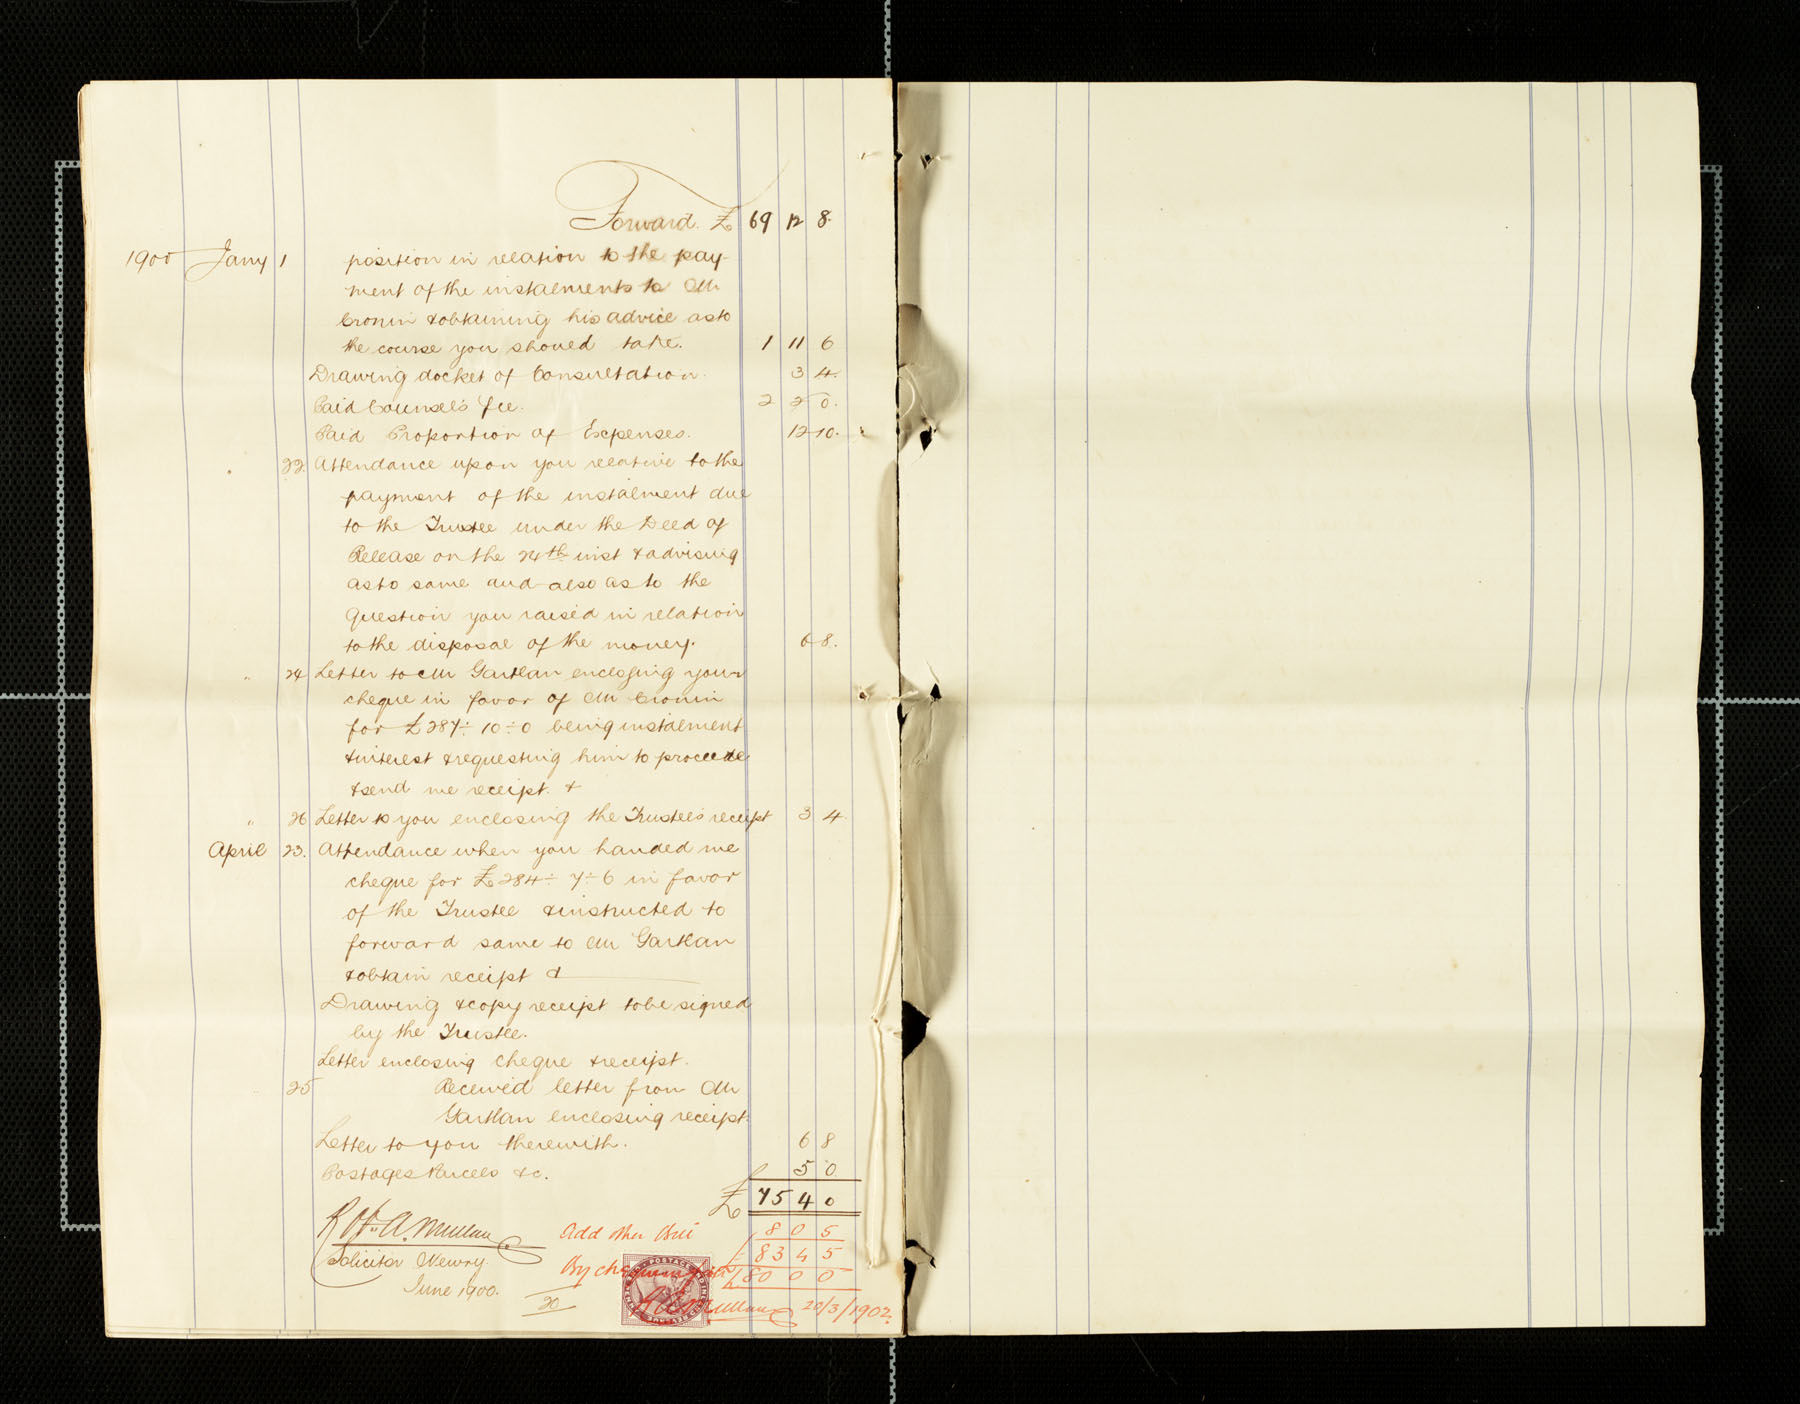 Forward. £ 69 12 8.
1900 Jany 1 position in relation to the pay-
ment of the instalments to Mr
Cronin & obtaining his advice as to
the course you should take. 1 11 6
Drawing docket of Consultation. 3 4.
Paid Counsel's fee. 2 2 0.
Paid Proportion of Expenses. 12 10.
" 22. Attendance upon you relative to the
payment of the instalment due
to the Trustee under the Deed of
Release on the 24th inst & advising
as to same and also as to the
question you raised in relation
to the disposal of the money. 6 8.
" 24 Letter to Mr Gartlan enclosing your
cheque in favor of Mr Cronin
for £287÷10÷0 being instalment
& interest & requesting him to
& send me receipt. &
" 26 Letter to you enclosing the Trustee's receipt 3 4.
April 23. Attendance when you handed me
cheque for £284÷7÷6 in favor
of the Trustee & instructed to
forward same to Mr Gartlan
& obtain receipt &
Drawing & copy receipt to be signed
by the Trustee.
Letter enclosing cheque & receipt.
25 Received letter from Mr
Gartlan enclosing receipt.
Letter to you therewith. 6 8
Postages Parcels &c. 5 0
£ 75 4 0
Robt. A. Mullan
Solicitor Newry.
June 1900.
Add other Bill 8 0 5
83 4 5
By cheque 80 0 0
20
R A Mullan 20/3/1902.